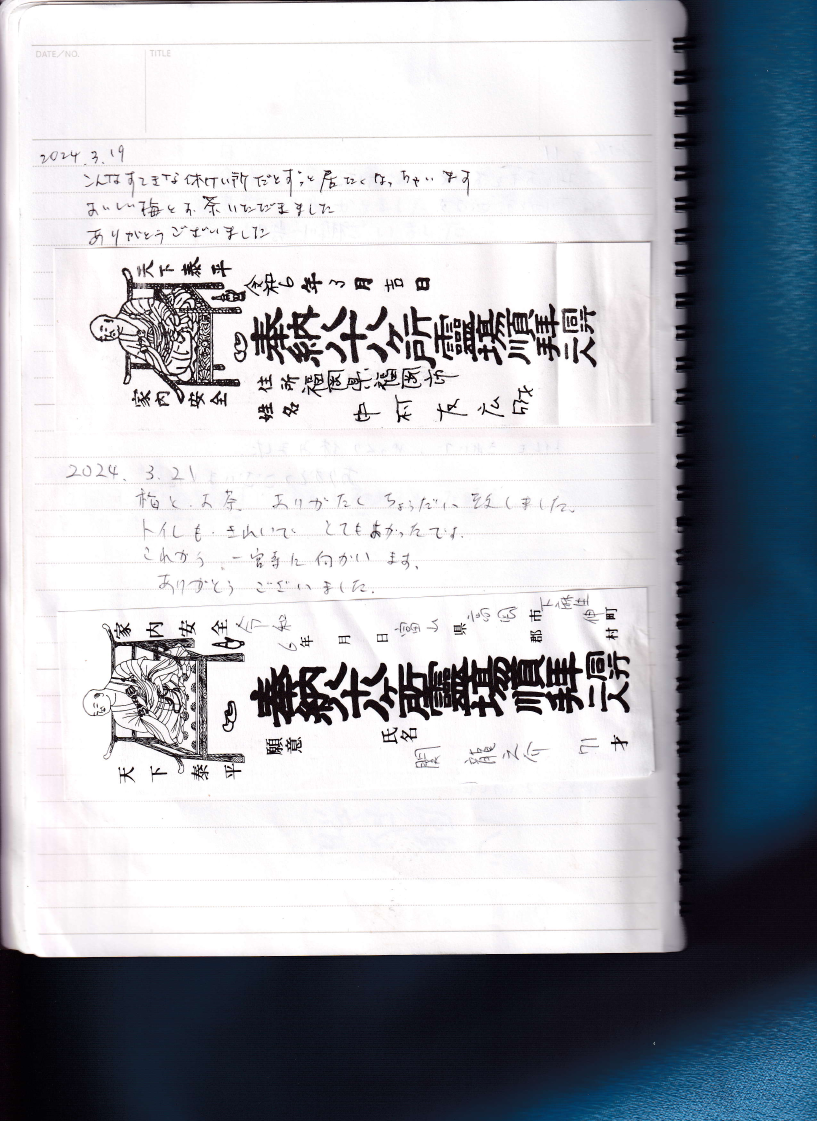 DATE/NO.
TITLE
2024.3.19
こんなすてきな休けい所だとずっと居たくなっちゃいます
おいしい梅とお茶いただきました
ありがとうございました
天下泰平
令和6年3月吉日
奉納八十八ヶ所霊場順拝
同行二人
家内安全
住所 福岡県福岡市
姓名 中村友
2024. 3.21
梅と、お茶 ありがたく ちょうだい 致しました。
トイレも きれいで とてもよかったです。
これから、一宮寺に向かいます。
ありがとう ございました。
家内安全
令和6年 月 日
富山県高岡市
郡
町村
奉納八十八ヶ所霊場順拝
同行二人
願意
氏名
龍之介 71才
天下泰平